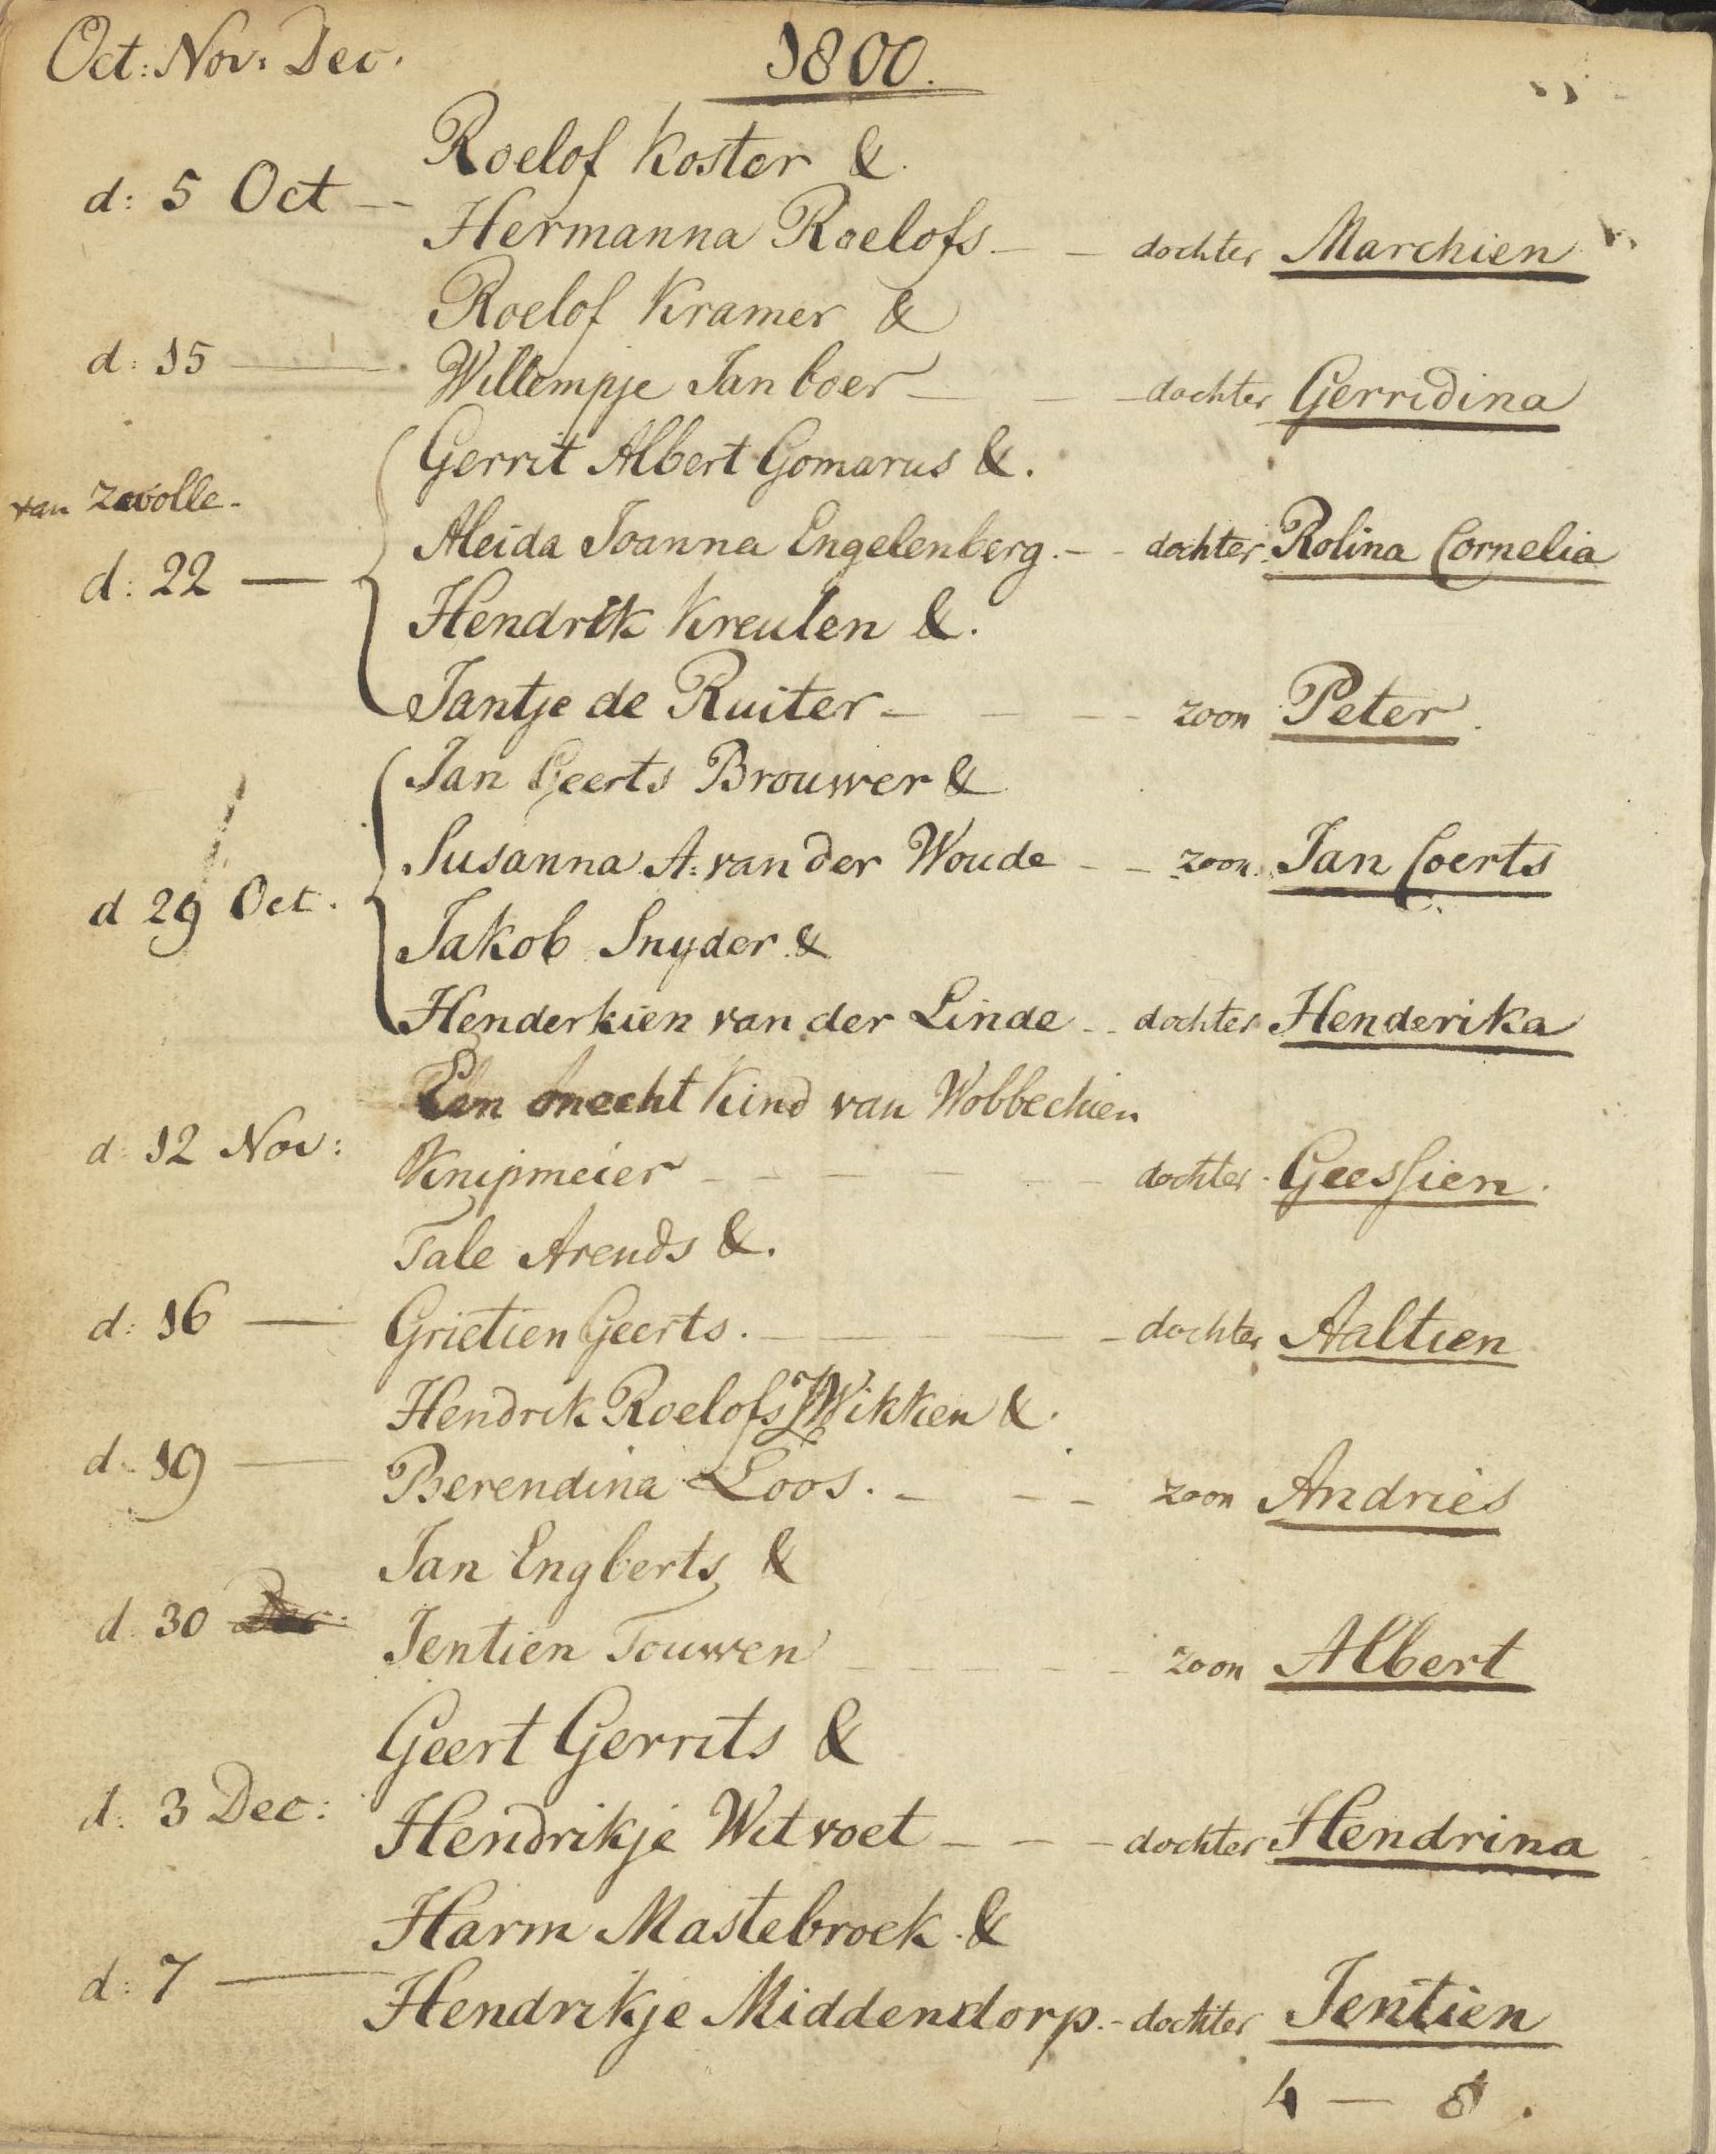 Oct: Nov: Dec. 1800.
Roelof Koster &.
d: 5 Oct --
Hermanna Roelofs - - dochter Marchien
Roelof Kramer &
d: 15 —
Willempje Jan boer - - - dochter Gerridina
Gerrit Albert Gomarus &.
van Zwolle.
Aleida Joanna Engelenberg. - - dochter Rolina Cornelia
d: 22 —
Hendrik Kreulen &.
Jantje de Ruiter - - - - zoon Peter.
Jan Geerts Brouwer &
Susanna A: van der Woude - - zoon Jan Coerts
d 29 Oct.
Jakob Snyder &
Henderkien van der Linde - - dochter Henderika
Een onecht Kind van Wobbechien
d: 12 Nov:
Knipmeier - - - - - - dochter. Geessien.
Tale Arends &.
d: 16 —
Grietien Geerts. - - - - dochter Aaltien
Hendrik Roelofs Wikken &.
d. 19 —
Berendina Loos. - - - zoon Andries
Jan Engberts &
d. 30
Jentien Touwen - - - - - zoon Albert
Geert Gerrits &
d: 3 Dec:
Hendrikje Witvoet - - - dochter Hendrina
Harm Mastebroek &
d: 7 —
Hendrikje Middendorp. - dochter Jentien
4 — 8.